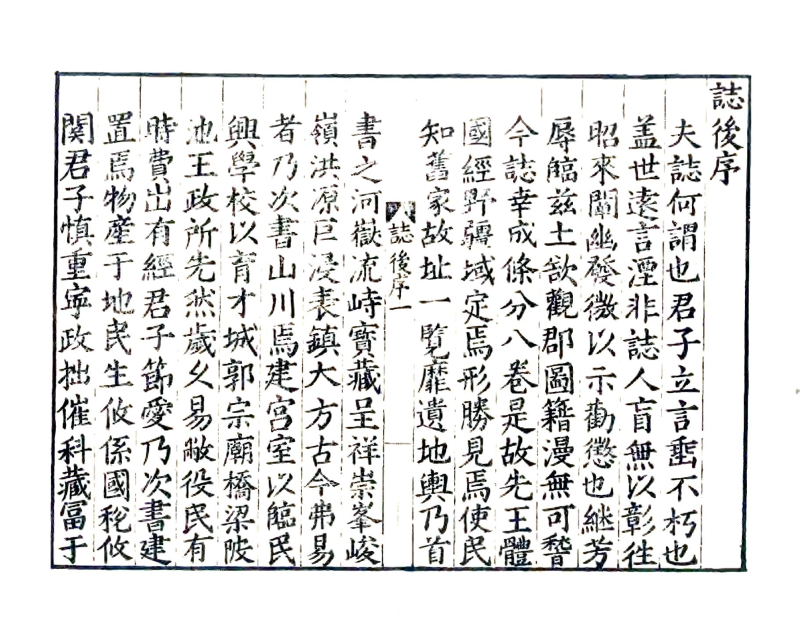 誌後序
夫誌何謂也君子立言垂不朽也
盖世遠言湮非誌人盲無以彰徃
昭來闡幽發微以示勸懲也継芳
辱臨兹土歆觀郡圖籍漫無可嵆
今誌幸成條分八卷是故先王體
國經野疆域定焉形勝見焉使民
知舊家故址一覽靡遺地輿乃首
誌後序一
書之河嶽流峙寳藏呈祥崇峯峻
嶺洪源巨浸表鎮大方古今弗易
者乃次書山川焉建宫室以臨民
興學校以育才城郭宗廟橋梁陂
池王政所先然歲乆易敝役民有
時費出有經君子節愛乃次書建
置焉物産于地民生攸係國稅攸
関君子慎重寧政拙催科藏冨于